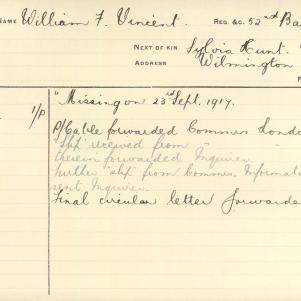 NAME William F. Vincent. REG. &C. 52nd Ba
NEXT OF KIN Sylvia Hunt.
ADDRESS Wilmington
"Missing on 23rd Sept. 1917.
1/P P/Cable forwarded Commrs Londo
"slip" received from "
therein forwarded Inquirer
further "slip" from Commrs. Informat
sent Inquirer.
Final circular letter forwarde